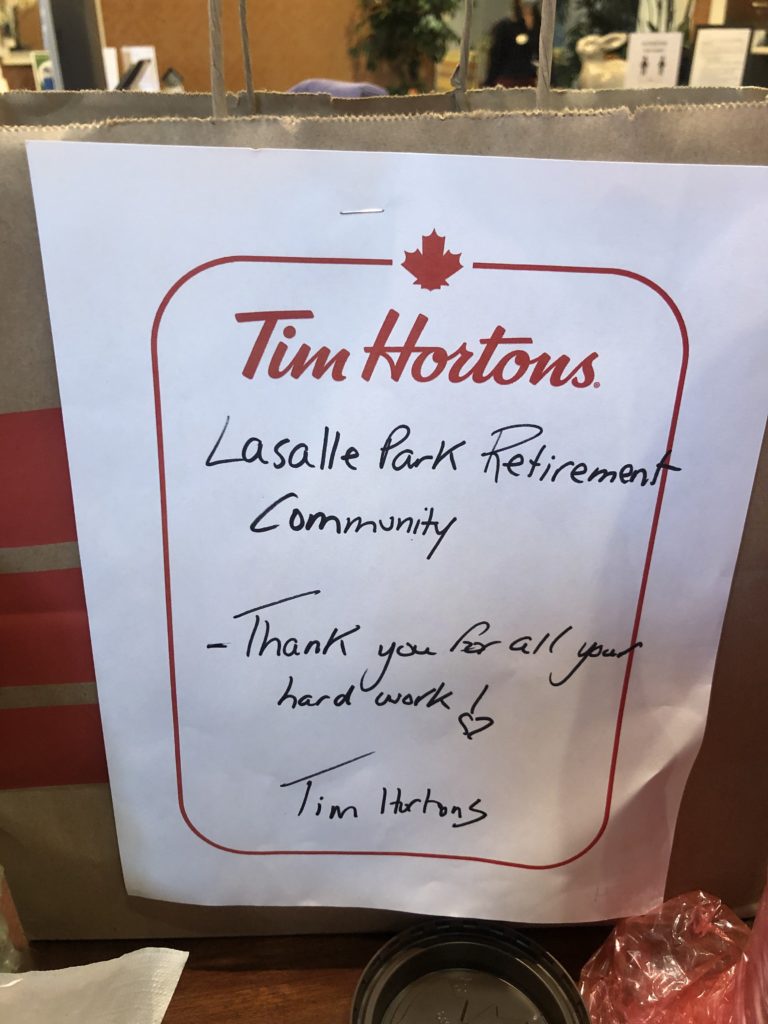 Tim Hortons.
Lasalle Park Retirement
Community
- Thank you for all your
hard work! ♡
Tim Hortons